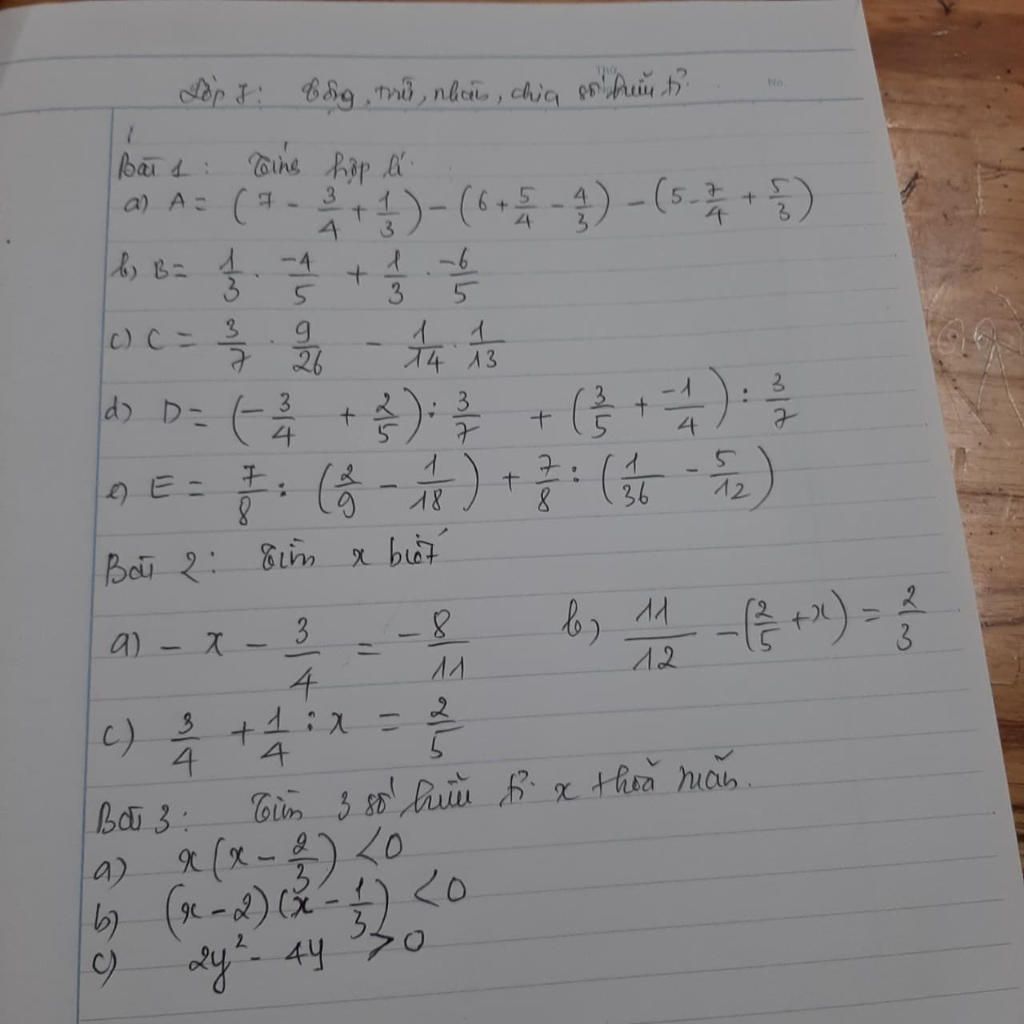 Lớp 7: Cộng, trừ, nhân, chia số hữu tỉ
Bài 1: Tính hợp lí
a) A = (7 - 3/4 + 1/3) - (6 + 5/4 - 4/3) - (5 - 7/4 + 5/3)
b) B = 1/3 . -4/5 + 1/3 . -6/5
c) C = 3/7 . 9/26 - 1/14 . 1/13
d) D = (-3/4 + 2/5) : 3/7 + (3/5 + -1/4) : 3/7
e) E = 7/8 : (2/9 - 1/18) + 7/8 : (1/36 - 5/12)
Bài 2: Tìm x biết
a) - x - 3/4 = -8/11 b) 11/12 - (2/5 + x) = 2/3
c) 3/4 + 1/4 : x = 2/5
Bài 3: Tìm 3 số hữu tỉ x thoả mãn.
a) x(x - 2/3) < 0
b) (x - 2)(x - 1/3) < 0
c) 2y² - 4y > 0